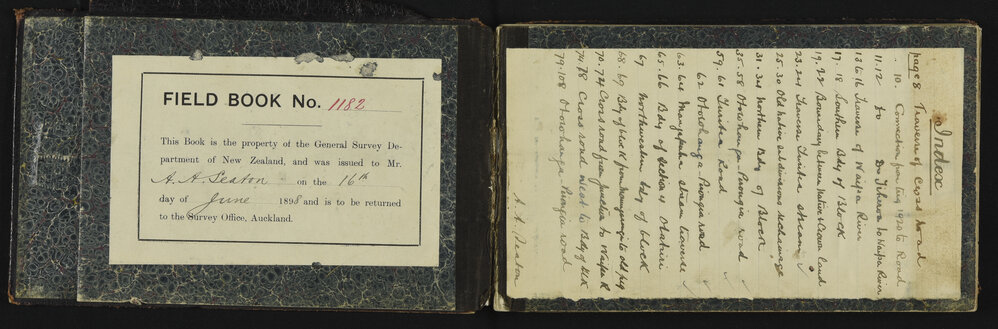 FIELD BOOK No. 1182
This Book is the property of the General Survey De-
partment of New Zealand, and was issued to Mr.
A. A. Seaton on the 16th
day of June 1898 and is to be returned
to the Survey Office, Auckland.
Index
page 8 Traverse of Cross road
" 10 Connection from Trig 1920 to Road
11. 12 do to Waipa River
13 to 16 Traverse of Waipa River
17. 18 Southern Bdy of Block
19. 22 Boundary between Native & Crown land
23. 24 Traverse Turitea stream
25. 30 Old native subdivisions
31. 34 Northern Bdy of Block
35. 58 Otorohanga Pirongia road
59. 61 Turitea Road
62 Otorohanga Pirongia road
63. 64 Mangapuha stream traverse
65. 66 Bdy of sections
67 Northwestern bdy of block
68. 69 Bdy of block from to old peg
70. 74 Cross road from junction to Waipa R
74. 78 Cross road West to Bdy of Blk
79. 108 Otorohanga Pirongia road
A. A. Seaton